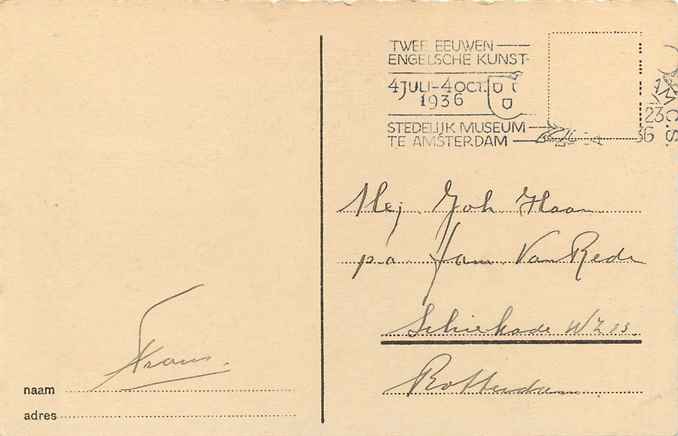 TWEE EEUWEN
ENGELSCHE KUNST
4 JULI-4 OCT.
1936
STEDELIJK MUSEUM
TE AMSTERDAM
23
36
C.S.
Mej. Joh. Haan
p.a. Fam. Van Rede
Schiekade W.Z.
Rotterdam
Frans.
naam
adres